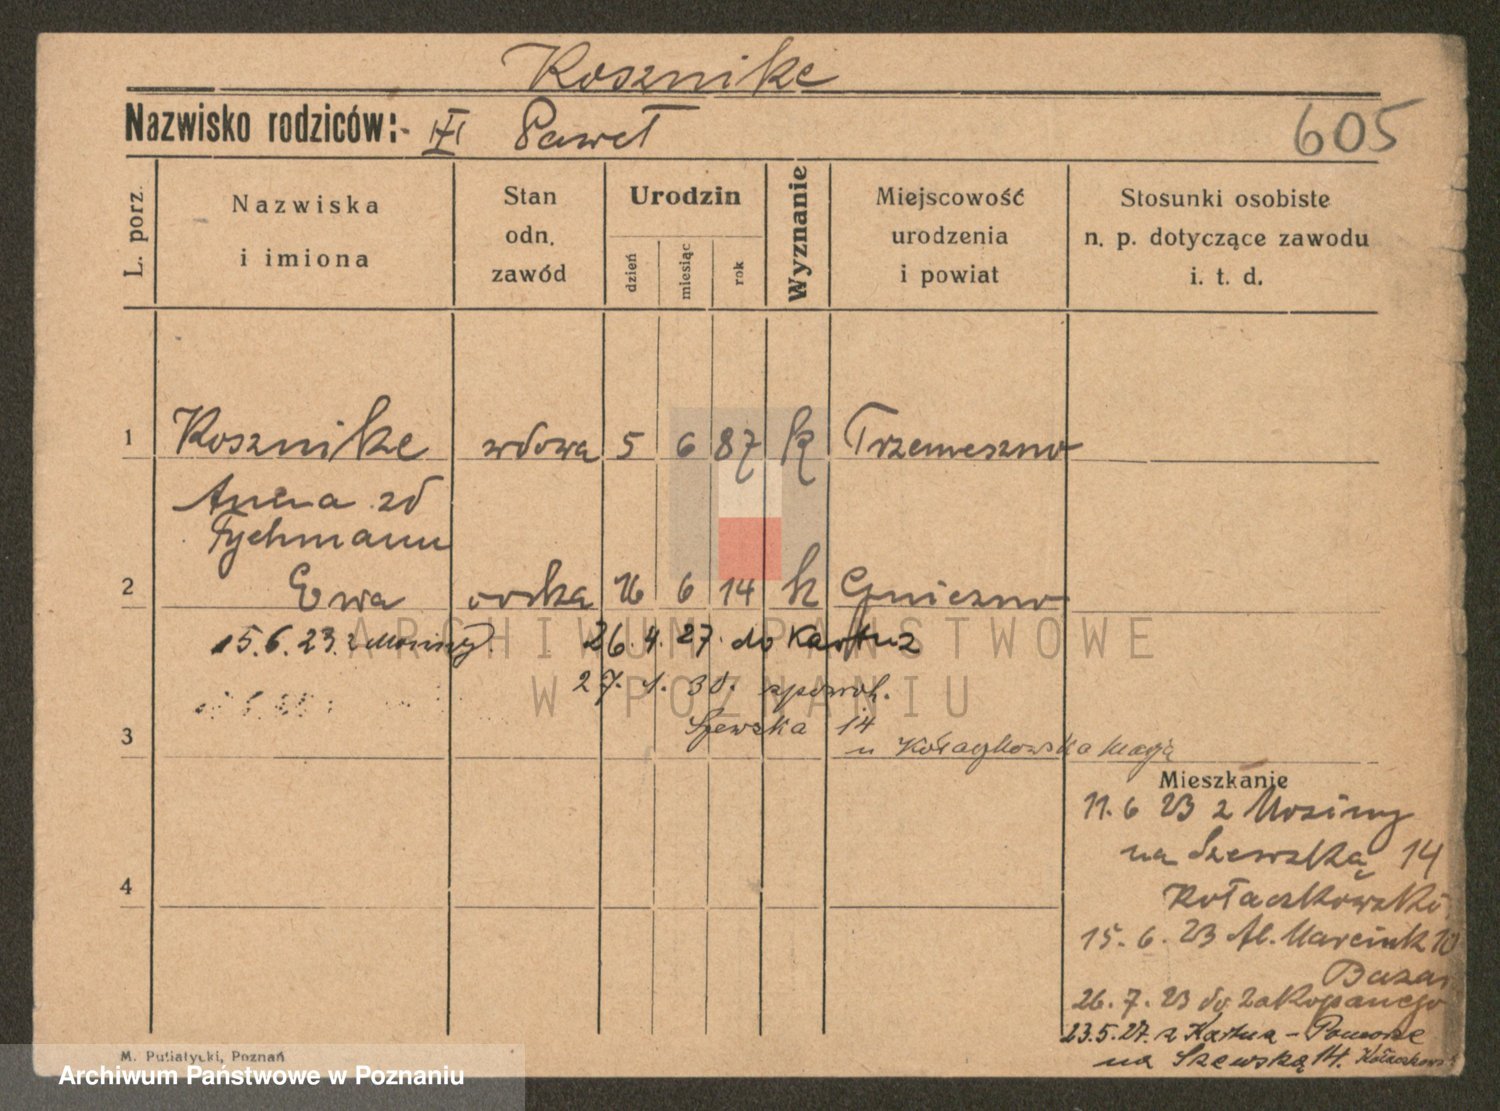 Kosznike
Nazwisko rodziców: III Paweł
605
L. porz.
Nazwiska
i imiona
Stan
odn.
zawód
Urodzin
dzień
miesiąc
rok
Wyznanie
Miejscowość
urodzenia
i powiat
Stosunki osobiste
n. p. dotyczące zawodu
i. t. d.
1 Kosznike wdowa 5 6 87 k Trzemeszno
Anna zd
Tychmann
2 Ewa córka 16 6 14 k Gniezno
15.6.23. z Mosiny. 26.4.27. do Kartuz
27. 1. 30. spowoł.
3 Szewska 14
u Kołaczkowska
Mieszkanie
11. 6 23 z Mosiny
na Szewską 14
Kołaczkowski
4
15. 6. 23 Al. Marcink 10
Bazar
26. 7. 23 do Zakopanego
23.5.27. z Kartuz - Pomorze
na Szewską 14. Kołaczkows
M. Putiatycki, Poznań
ARCHIWUM PAŃSTWOWE
W POZNANIU
Archiwum Państwowe w Poznaniu